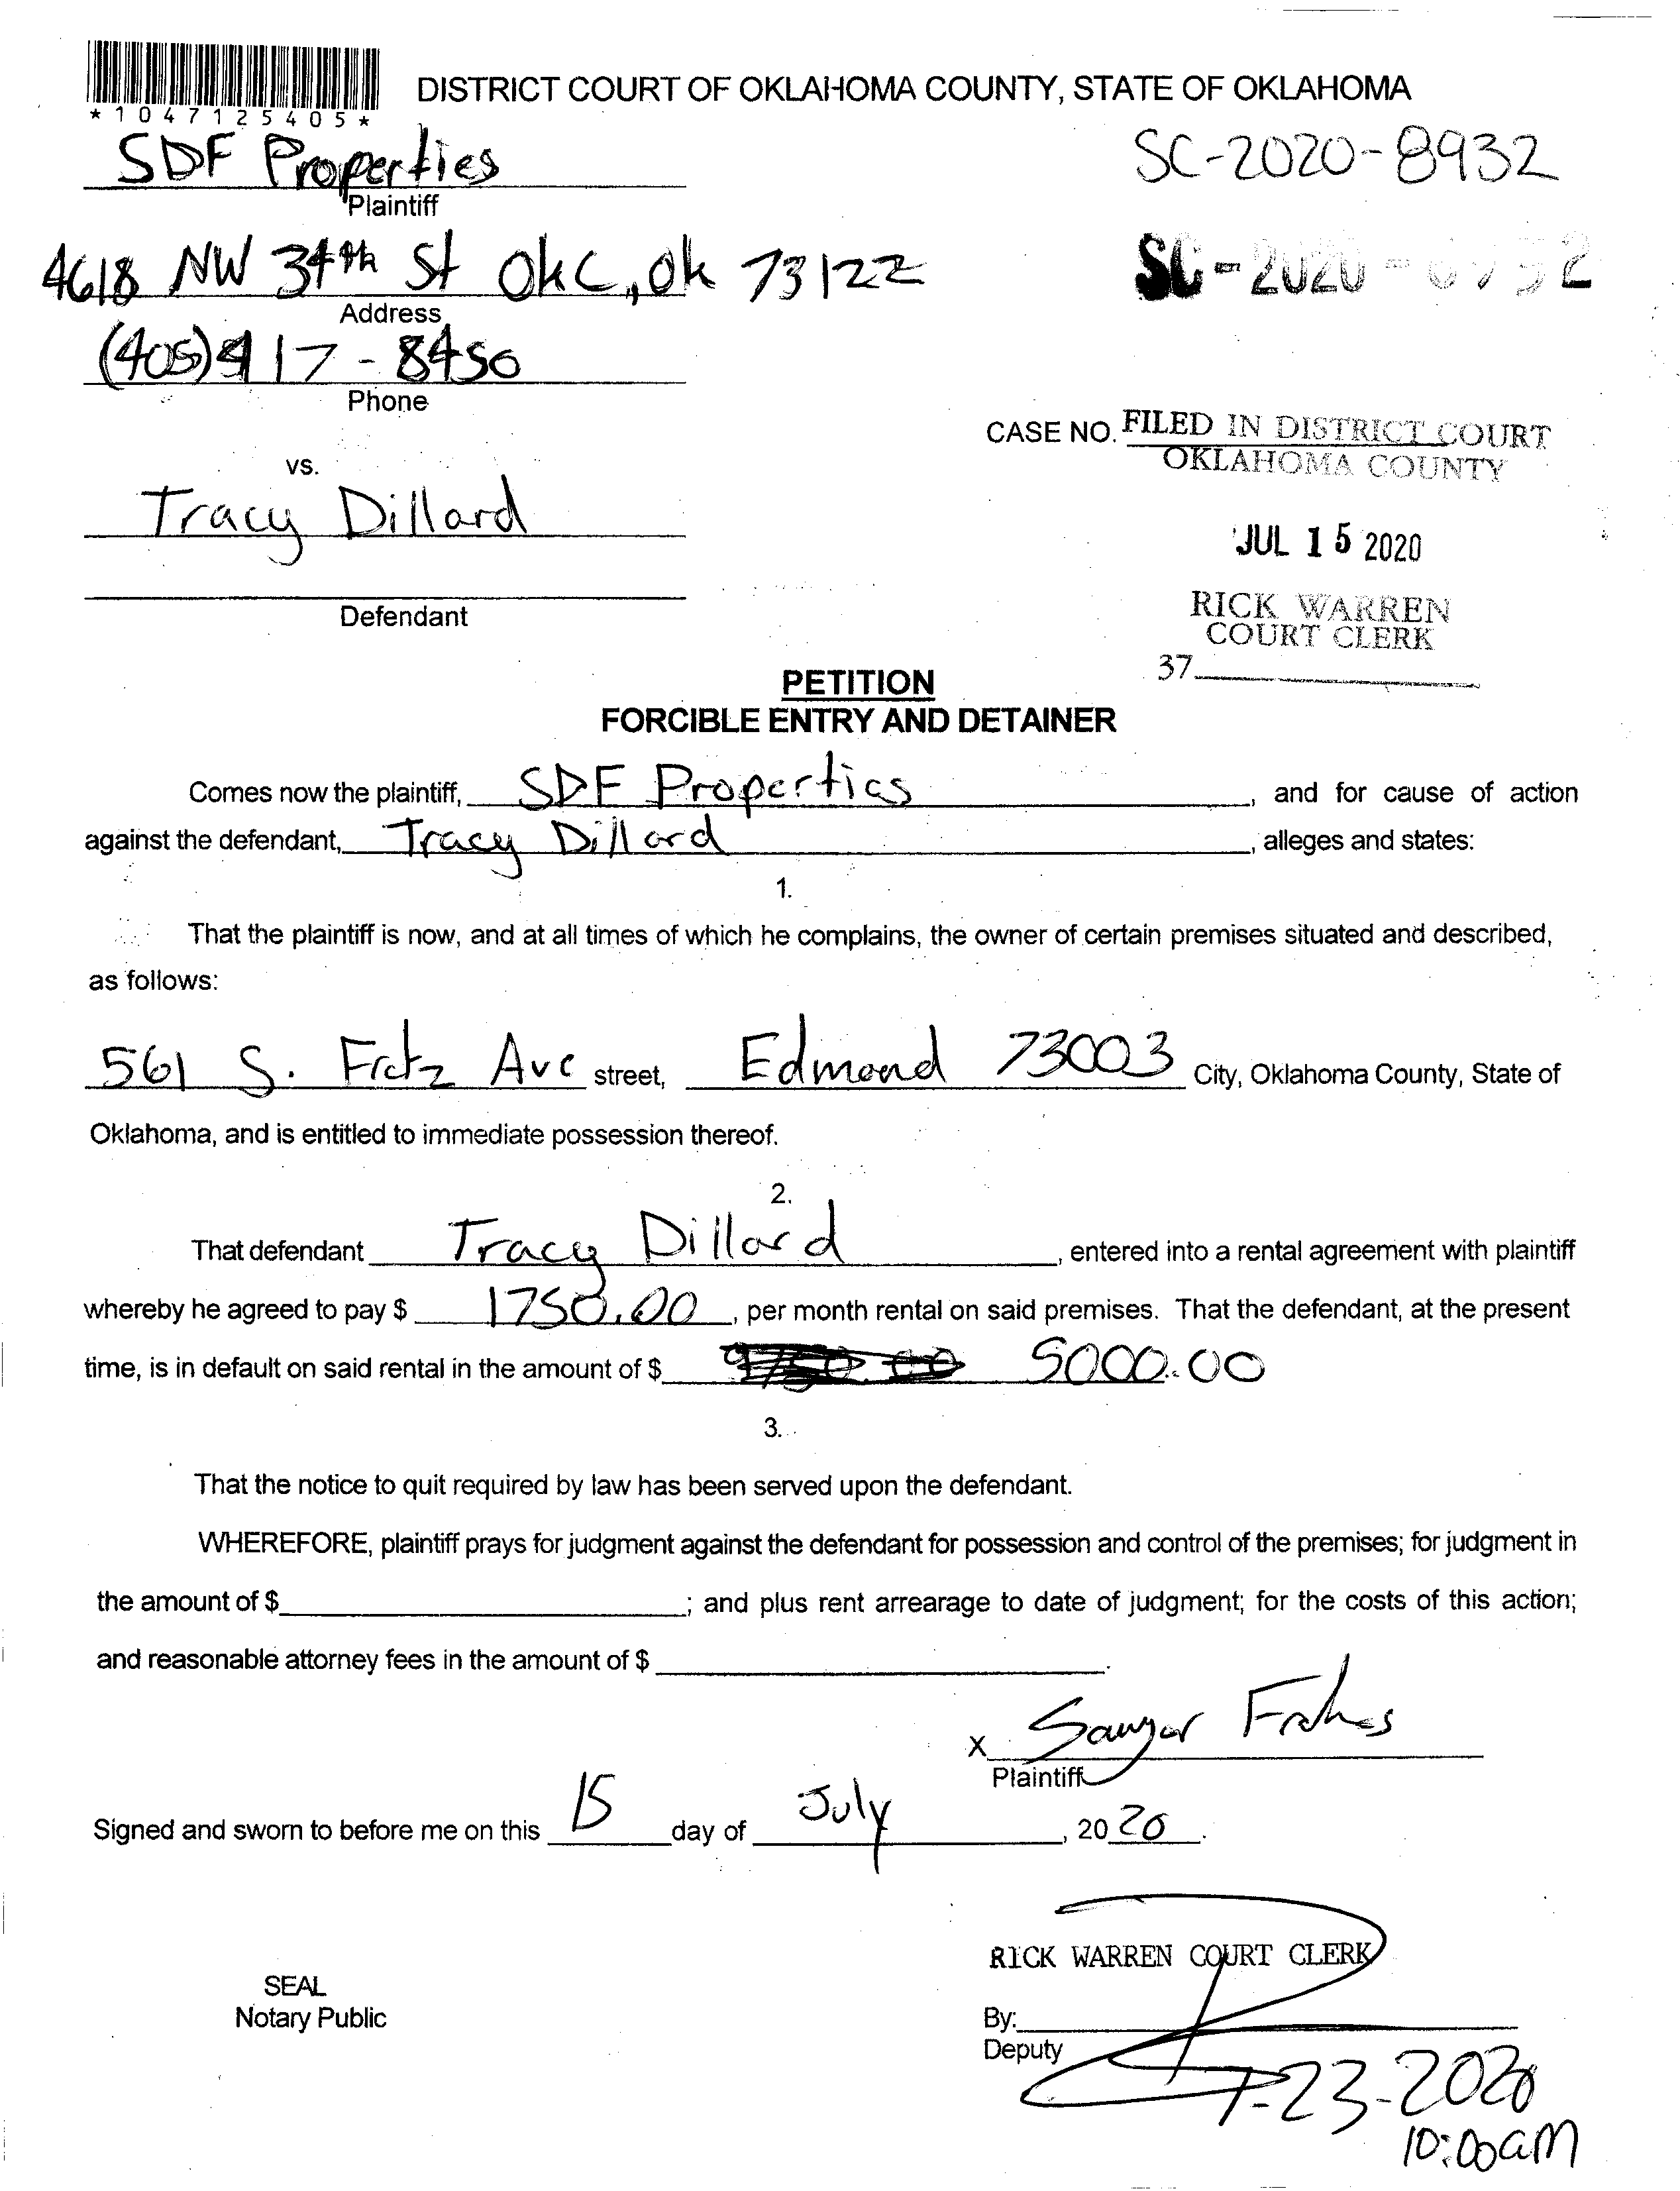 DISTRICT COURT OF OKLAHOMA COUNTY, STATE OF OKLAHOMA
*1047125405*
SDF Properties
Plaintiff
SC-2020-8932
4618 NW 34th St OKC, OK 73122
Address
SC-2020-8932
(405) 417-8450
Phone
CASE NO. FILED IN DISTRICT COURT
OKLAHOMA COUNTY
vs.
Tracy Dillard
JUL 15 2020
Defendant
RICK WARREN
COURT CLERK
37
PETITION
FORCIBLE ENTRY AND DETAINER
Comes now the plaintiff, SDF Properties, and for cause of action
against the defendant, Tracy Dillard, alleges and states:
1.
That the plaintiff is now, and at all times of which he complains, the owner of certain premises situated and described,
as follows:
561 S. Fretz Ave street, Edmond 73003 City, Oklahoma County, State of
Oklahoma, and is entitled to immediate possession thereof.
2.
That defendant Tracy Dillard, entered into a rental agreement with plaintiff
whereby he agreed to pay $ 1750.00, per month rental on said premises. That the defendant, at the present
time, is in default on said rental in the amount of $ 5000.00
3.
That the notice to quit required by law has been served upon the defendant.
WHEREFORE, plaintiff prays for judgment against the defendant for possession and control of the premises; for judgment in
the amount of $ ; and plus rent arrearage to date of judgment; for the costs of this action;
and reasonable attorney fees in the amount of $ .
X Sawyer
Plaintiff
Signed and sworn to before me on this 15 day of July, 2020.
RICK WARREN COURT CLERK
SEAL
Notary Public
By:
Deputy
7-23-2020
10:00am